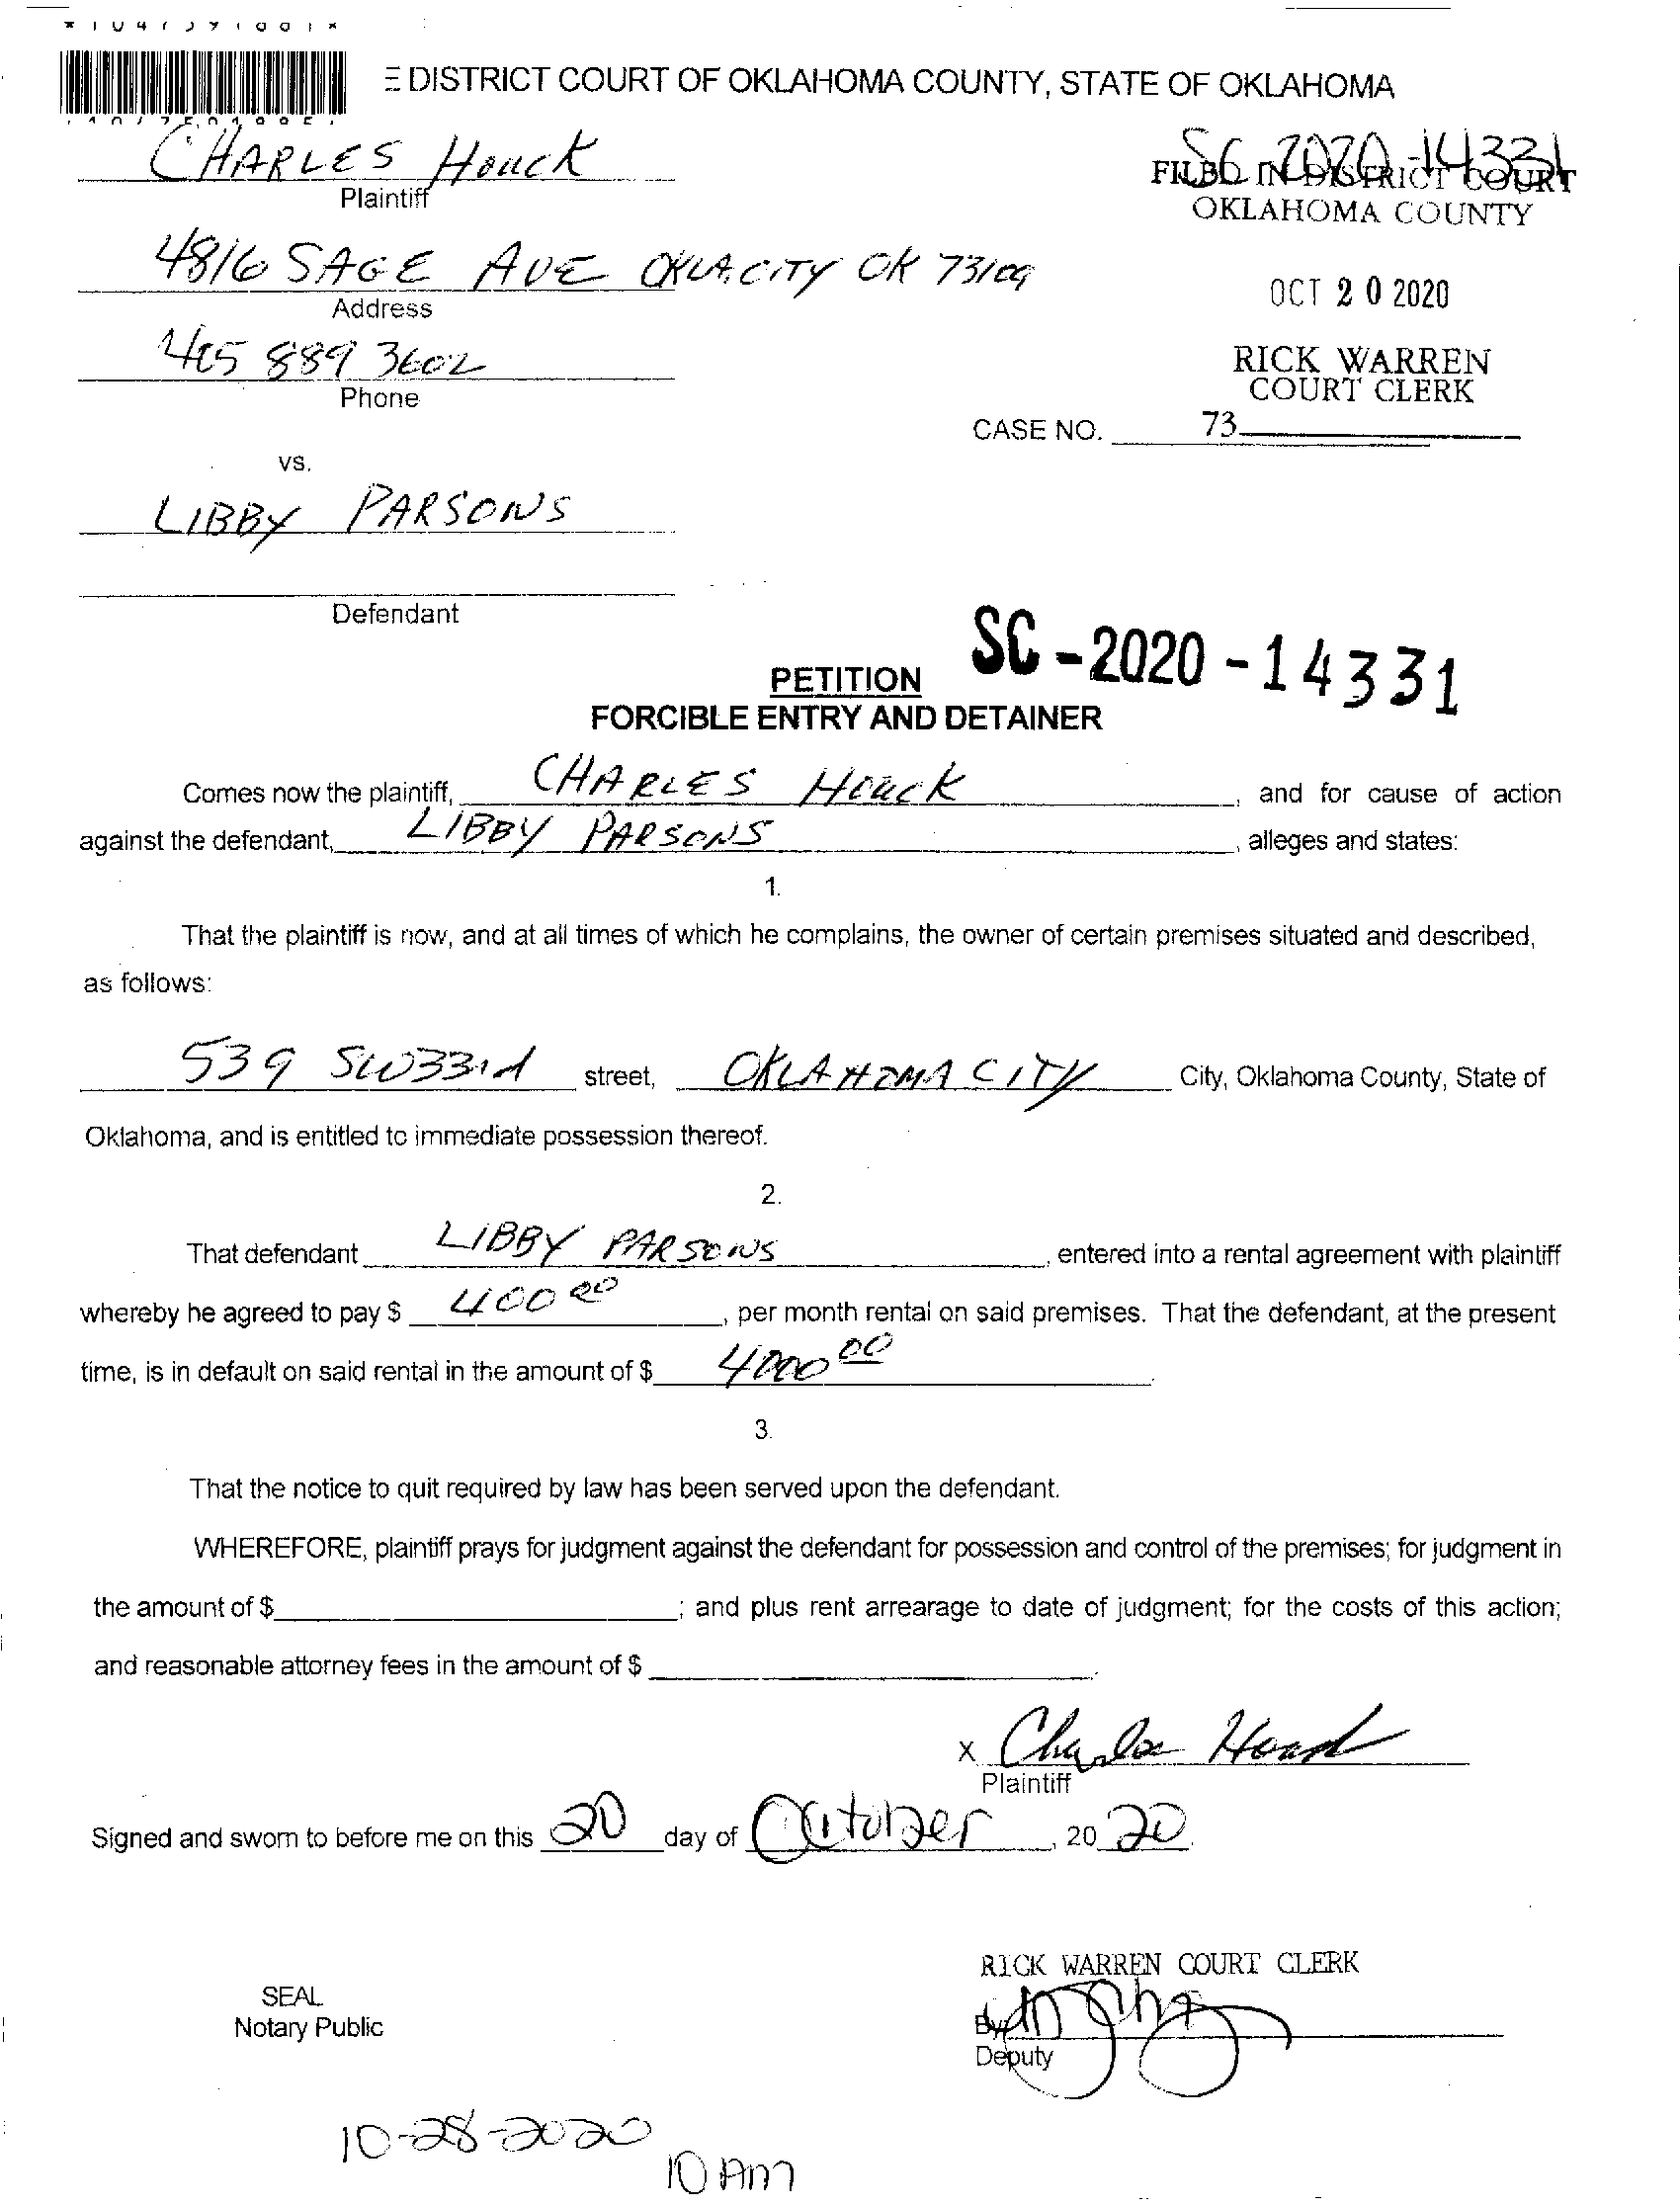 DISTRICT COURT OF OKLAHOMA COUNTY, STATE OF OKLAHOMA
CHARLES HOUCK
Plaintiff
SC 2020-14331
FILED IN DISTRICT COURT
OKLAHOMA COUNTY
4816 SAGE AVE OKLA. CITY OK 73109
Address
OCT 20 2020
405 889 3602
Phone
RICK WARREN
COURT CLERK
CASE NO. 73
vs.
LIBBY PARSONS
Defendant
SC-2020-14331
PETITION
FORCIBLE ENTRY AND DETAINER
Comes now the plaintiff, CHARLES HOUCK, and for cause of action
against the defendant, LIBBY PARSONS, alleges and states:
1.
That the plaintiff is now, and at all times of which he complains, the owner of certain premises situated and described,
as follows:
539 SW33rd street, OKLAHOMA CITY City, Oklahoma County, State of
Oklahoma, and is entitled to immediate possession thereof.
2.
That defendant LIBBY PARSONS, entered into a rental agreement with plaintiff
whereby he agreed to pay $ 400 00, per month rental on said premises. That the defendant, at the present
time, is in default on said rental in the amount of $ 4000 00.
3.
That the notice to quit required by law has been served upon the defendant.
WHEREFORE, plaintiff prays for judgment against the defendant for possession and control of the premises; for judgment in
the amount of $; and plus rent arrearage to date of judgment; for the costs of this action;
and reasonable attorney fees in the amount of $.
X Charles Houck
Plaintiff
Signed and sworn to before me on this 20 day of October, 20 20.
RICK WARREN COURT CLERK
SEAL
Notary Public
By
Deputy
10-28-2020
10 AM